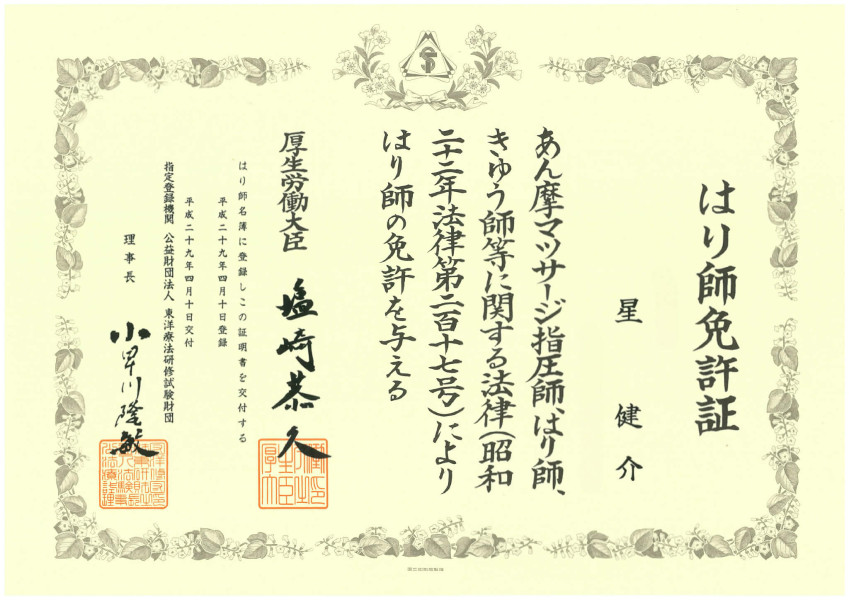 はり師免許証
星 健介
あん摩マッサージ指圧師、はり師、
きゅう師等に関する法律(昭和
二十二年法律第二百十七号)により
はり師の免許を与える
厚生労働大臣 塩崎恭久
はり師名簿に登録しこの証明書を交付する
平成二十九年四月十日登録
平成二十九年四月十日交付
指定登録機関 公益財団法人 東洋療法研修試験財団
理事長 小早川隆敏